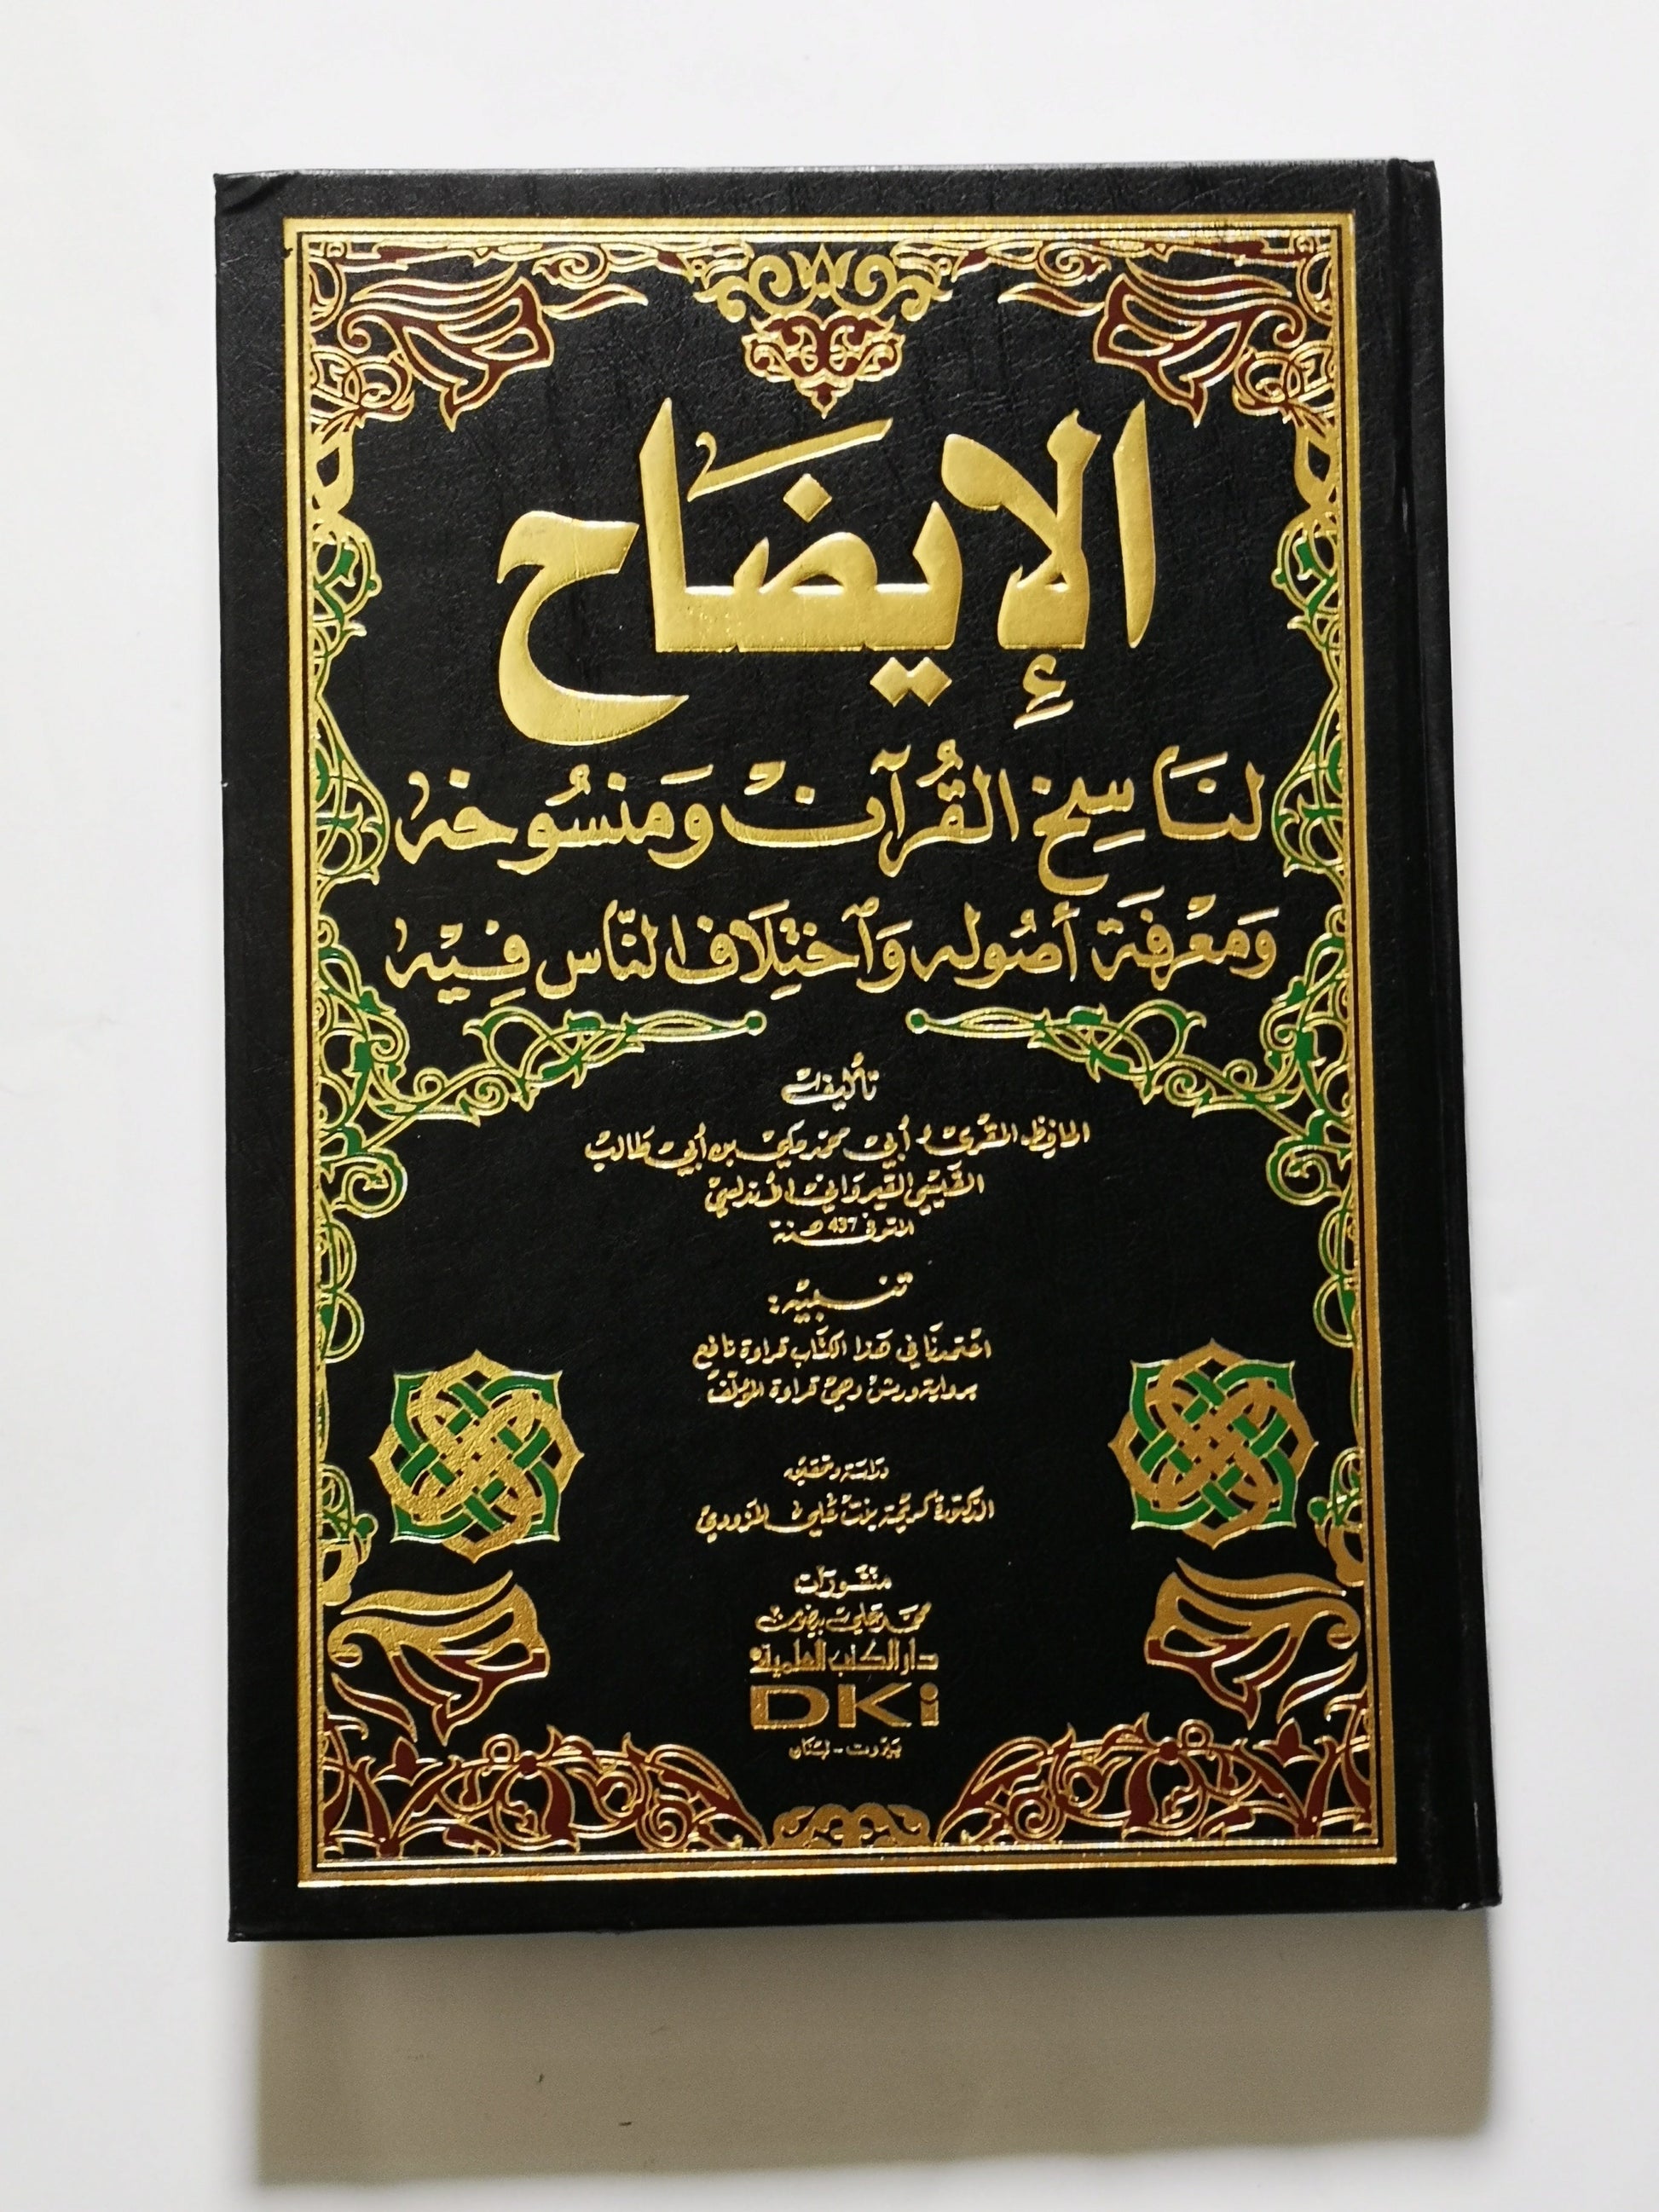 الإيضاح
لناسِخ القُرآن وَمَنسُوخه
وَمَعْرفَة أصُوله وَٱختِلَاف النّاس فِيْه
تأليف
الحافظ المقرئ أبي محمد مكي بن أبي طالب
القَيسي القيرَواني الأندلسي
المتوفى 437 هـ سنة
تنبيه:
اعتمدنَا في هَذا الكتَاب قراءة نافع
برواية ورش وهي قراءة المؤلّف
دراسَة وتحقيق
الدكتورة كريمَة بنت عَلي المزوودي
منشورات
محمد علي بيضون
دار الكتب العلمية
DKi
بَيْرُوت - لبْنَان